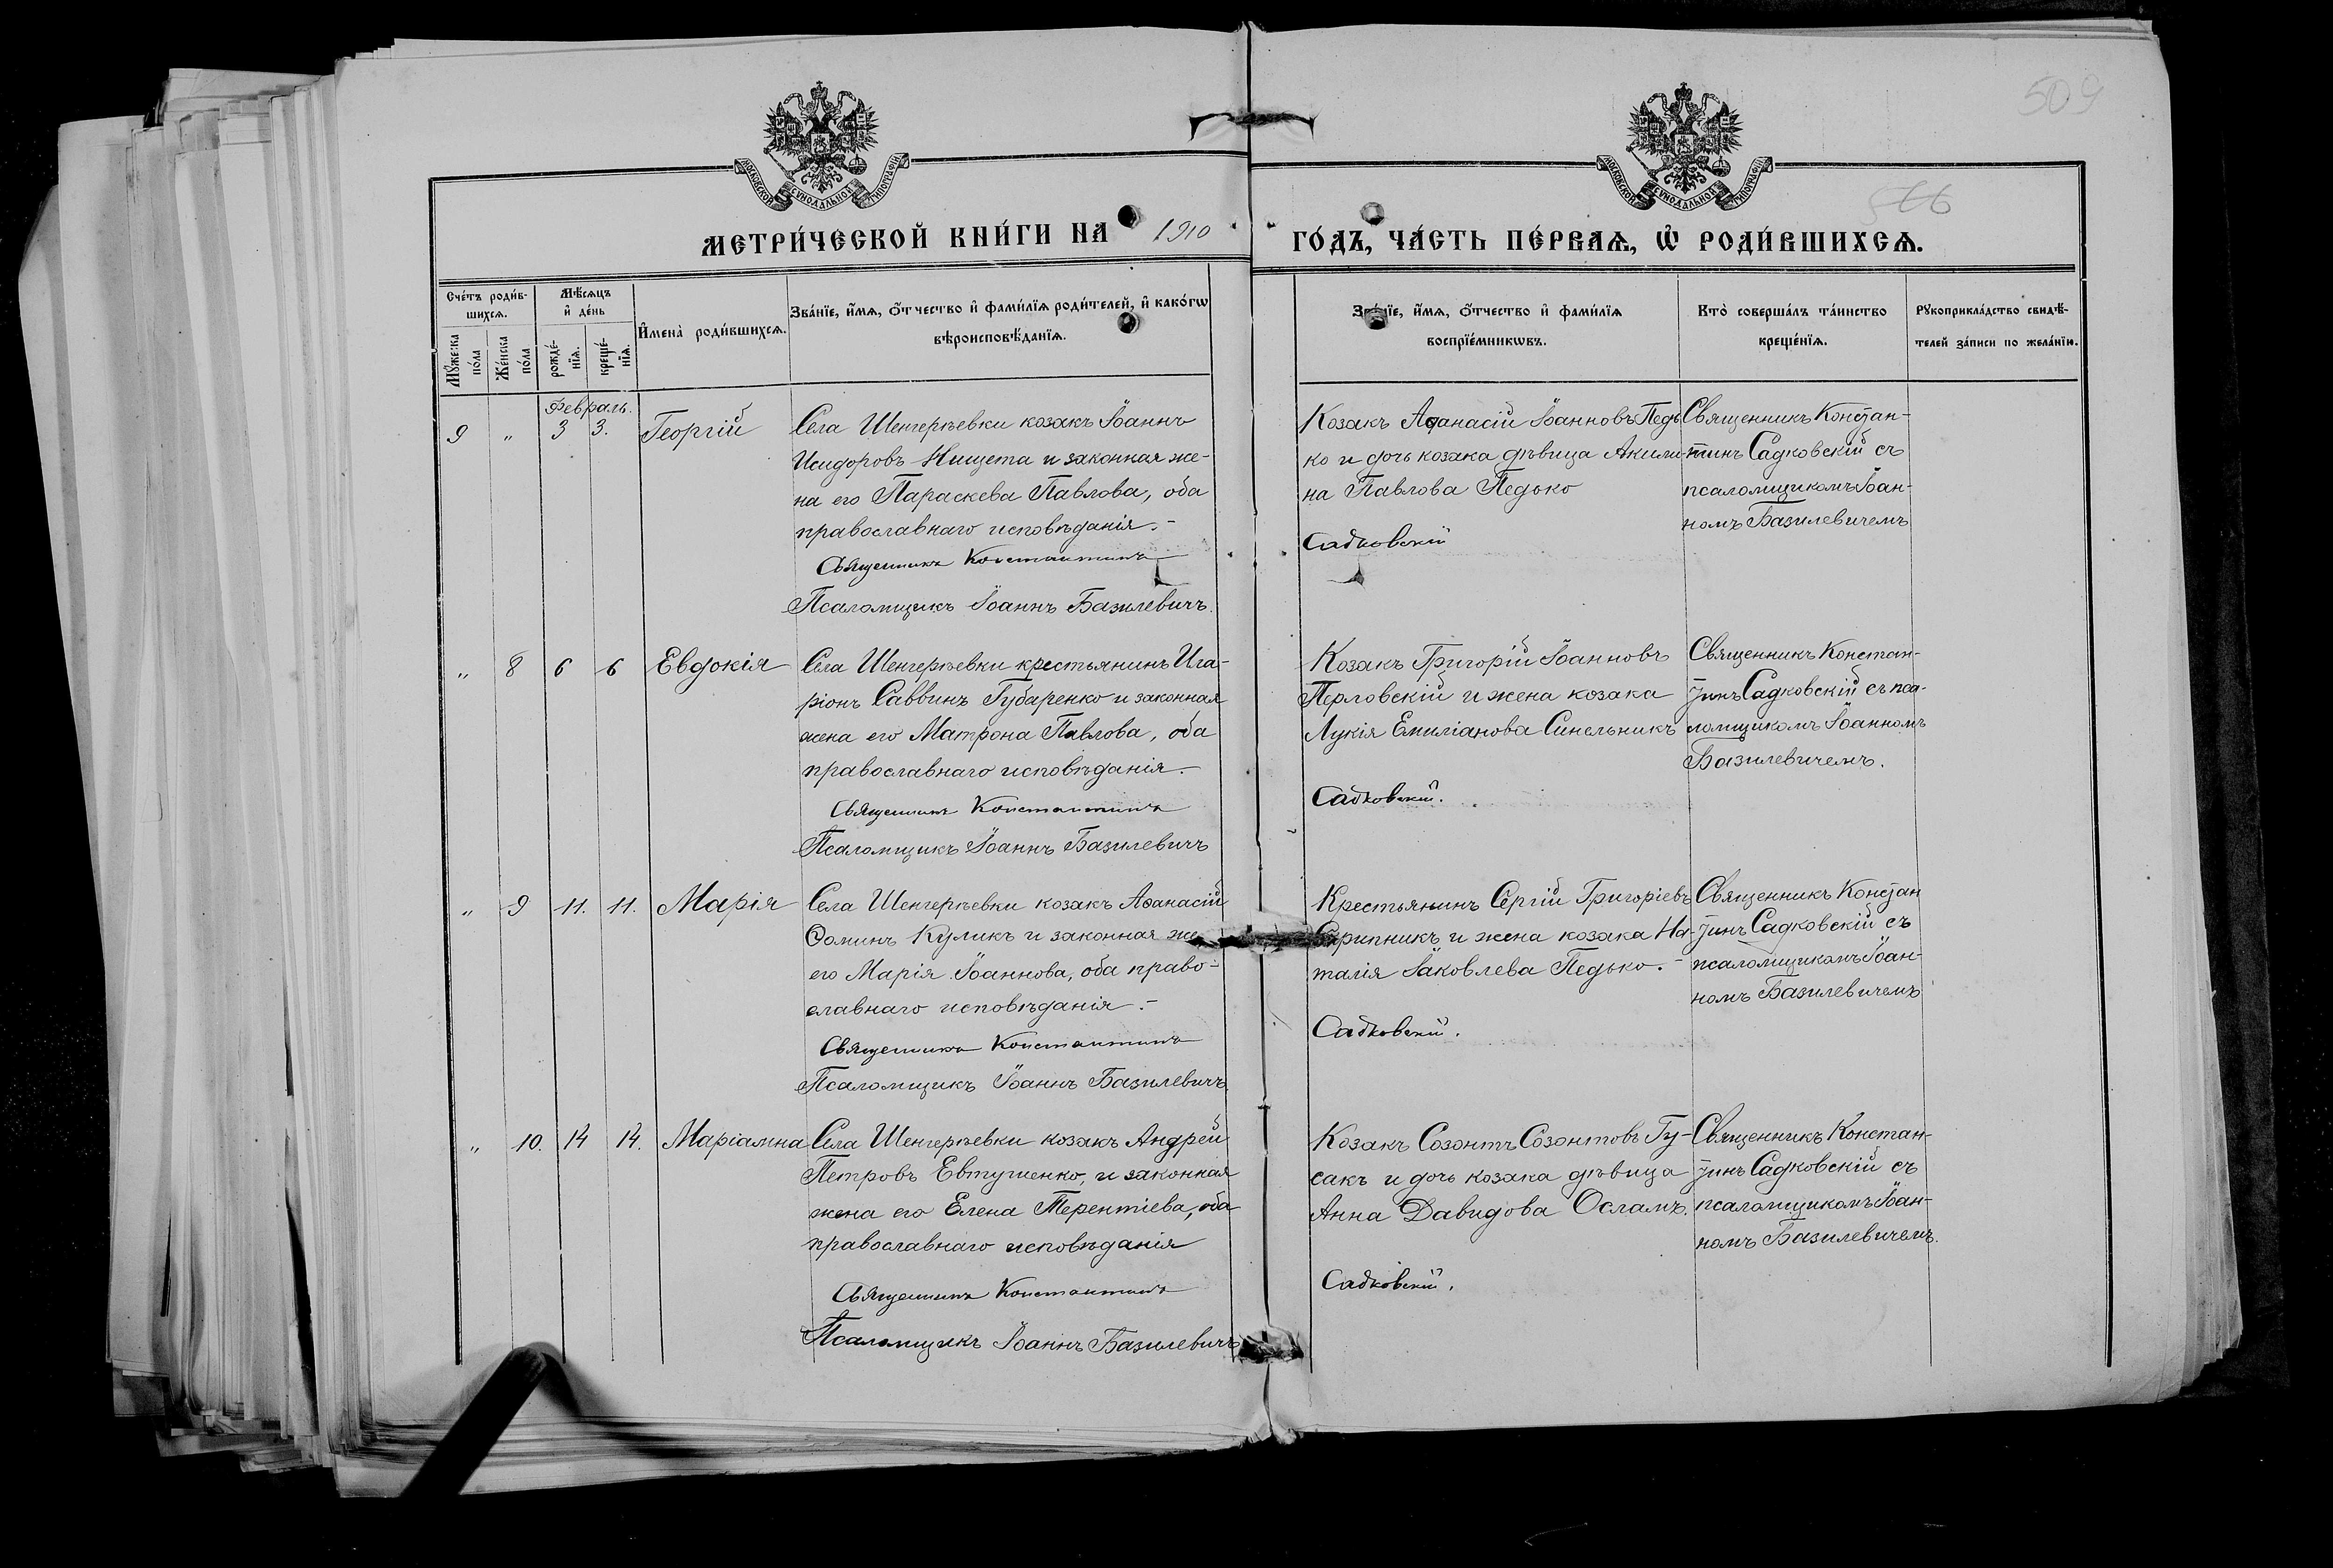 509
566
МОСКОВСКОЙ СѴНОДАЛЬНОЙ ТИПОГРАФІИ
МОСКОВСКОЙ СѴНОДАЛЬНОЙ ТИПОГРАФІИ
МЕТРИ́ЧЕСКОЙ КНИ́ГИ НА 1910 ГО́ДЪ, ЧА́СТЬ ПЕ́РВАѦ, Ѡ҆ РОДИ́ВШИХСѦ.
Сче́тъ роди́в-
шихсѧ.
Мꙋ́жеска
по́ла
Же́нска
по́ла
Мѣ́сѧцъ
и҆ де́нь
рожде́-
нїѧ.
креще́-
нїѧ.
И҆мена̀ роди́вшихсѧ.
Зва́нїе, и҆́мѧ, ѻ҆́тчество и҆ фами́лїѧ роди́телей, и҆ како́гѡ
вѣроисповѣ́данїѧ.
Зва́нїе, и҆́мѧ, ѻ҆́тчество и҆ фами́лїѧ
воспрїе́мникѡвъ.
Кто̀ соверша́лъ та́инство
креще́нїѧ.
Рꙋкоприкла́дство свидѣ́-
телей за́писи по жела́нїю.
Февраль.
9 " 3 3. Георгій
Села Шенгерѣевки козакъ Іоаннъ
Исидоровъ Нищета и законная же-
на его Параскева Павлова, оба
православнаго исповѣданія.-
Священникъ Константинъ
Псаломщикъ Іоаннъ Базилевичъ.
Козакъ Аѳанасій Іоанновъ Педь
ко и дочь козака дѣвица Акили-
на Павлова Педько
Садковскій
Священникъ Констан-
тинъ Садковскій съ
псаломщикомъ Іоан-
номъ Базилевичемъ
" 8 6 6 Евдокія
Села Шенгерѣевки крестьянинъ Ила-
ріонъ Саввинъ Губаренко и законная
жена его Матрона Павлова, оба
православнаго исповѣданія.-
Священникъ Константинъ
Псаломщикъ Іоаннъ Базилевичъ
Козакъ Григорій Іоанновъ
Перловскій и жена козака
Лукія Емиліанова Синельникъ
Садковскій.
Священникъ Констан-
тинъ Садковскій съ пса-
ломщикомъ Іоанномъ
Базилевичемъ.
" 9 11. 11. Марія
Села Шенгерѣевки козакъ Аѳанасій
Ѳоминъ Куликъ и законная же
его Марія Іоаннова, оба право-
славнаго исповѣданія.-
Священникъ Константинъ
Псаломщикъ Іоаннъ Базилевичъ
Крестьянинъ Сергій Григоріевъ
Скрипникъ и жена козака На-
талія Іаковлева Педько.-
Садковскій.
Священникъ Констан
тинъ Садковскій съ
псаломщикомъ Іоан-
номъ Базилевичемъ
" 10. 14 14. Маріамна
Села Шенгерѣевки козакъ Андрей
Петровъ Евтушенко, и законная
жена его Елена Терентіева, оба
православнаго исповѣданія
Священникъ Константинъ
Псаломщикъ Іоаннъ Базилевичъ
Козакъ Созонтъ Созонтовъ Гу-
сакъ и дочь козака дѣвица
Анна Давидова Осламъ.
Садковскій.
Священникъ Констан-
тинъ Садковскій съ
псаломщикомъ Іоан-
номъ Базилевичемъ.